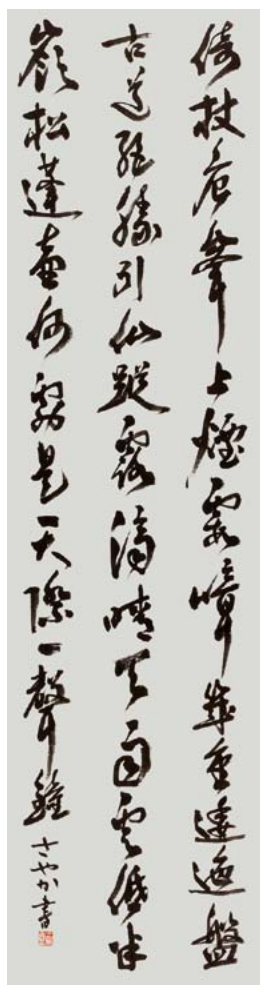 倚杖危峯上煙霞嶂幾重逶迤盤
古道絶勝引仙蹤露滴晴天雨雲低半
嶺松蓬壺何處是天際一聲鐘
さやか書